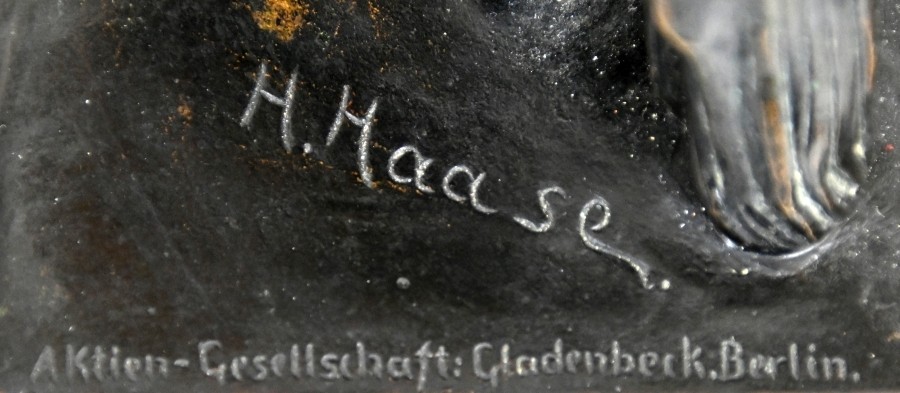 H. Haase.
Aktien-Gesellschaft: Gladenbeck. Berlin.